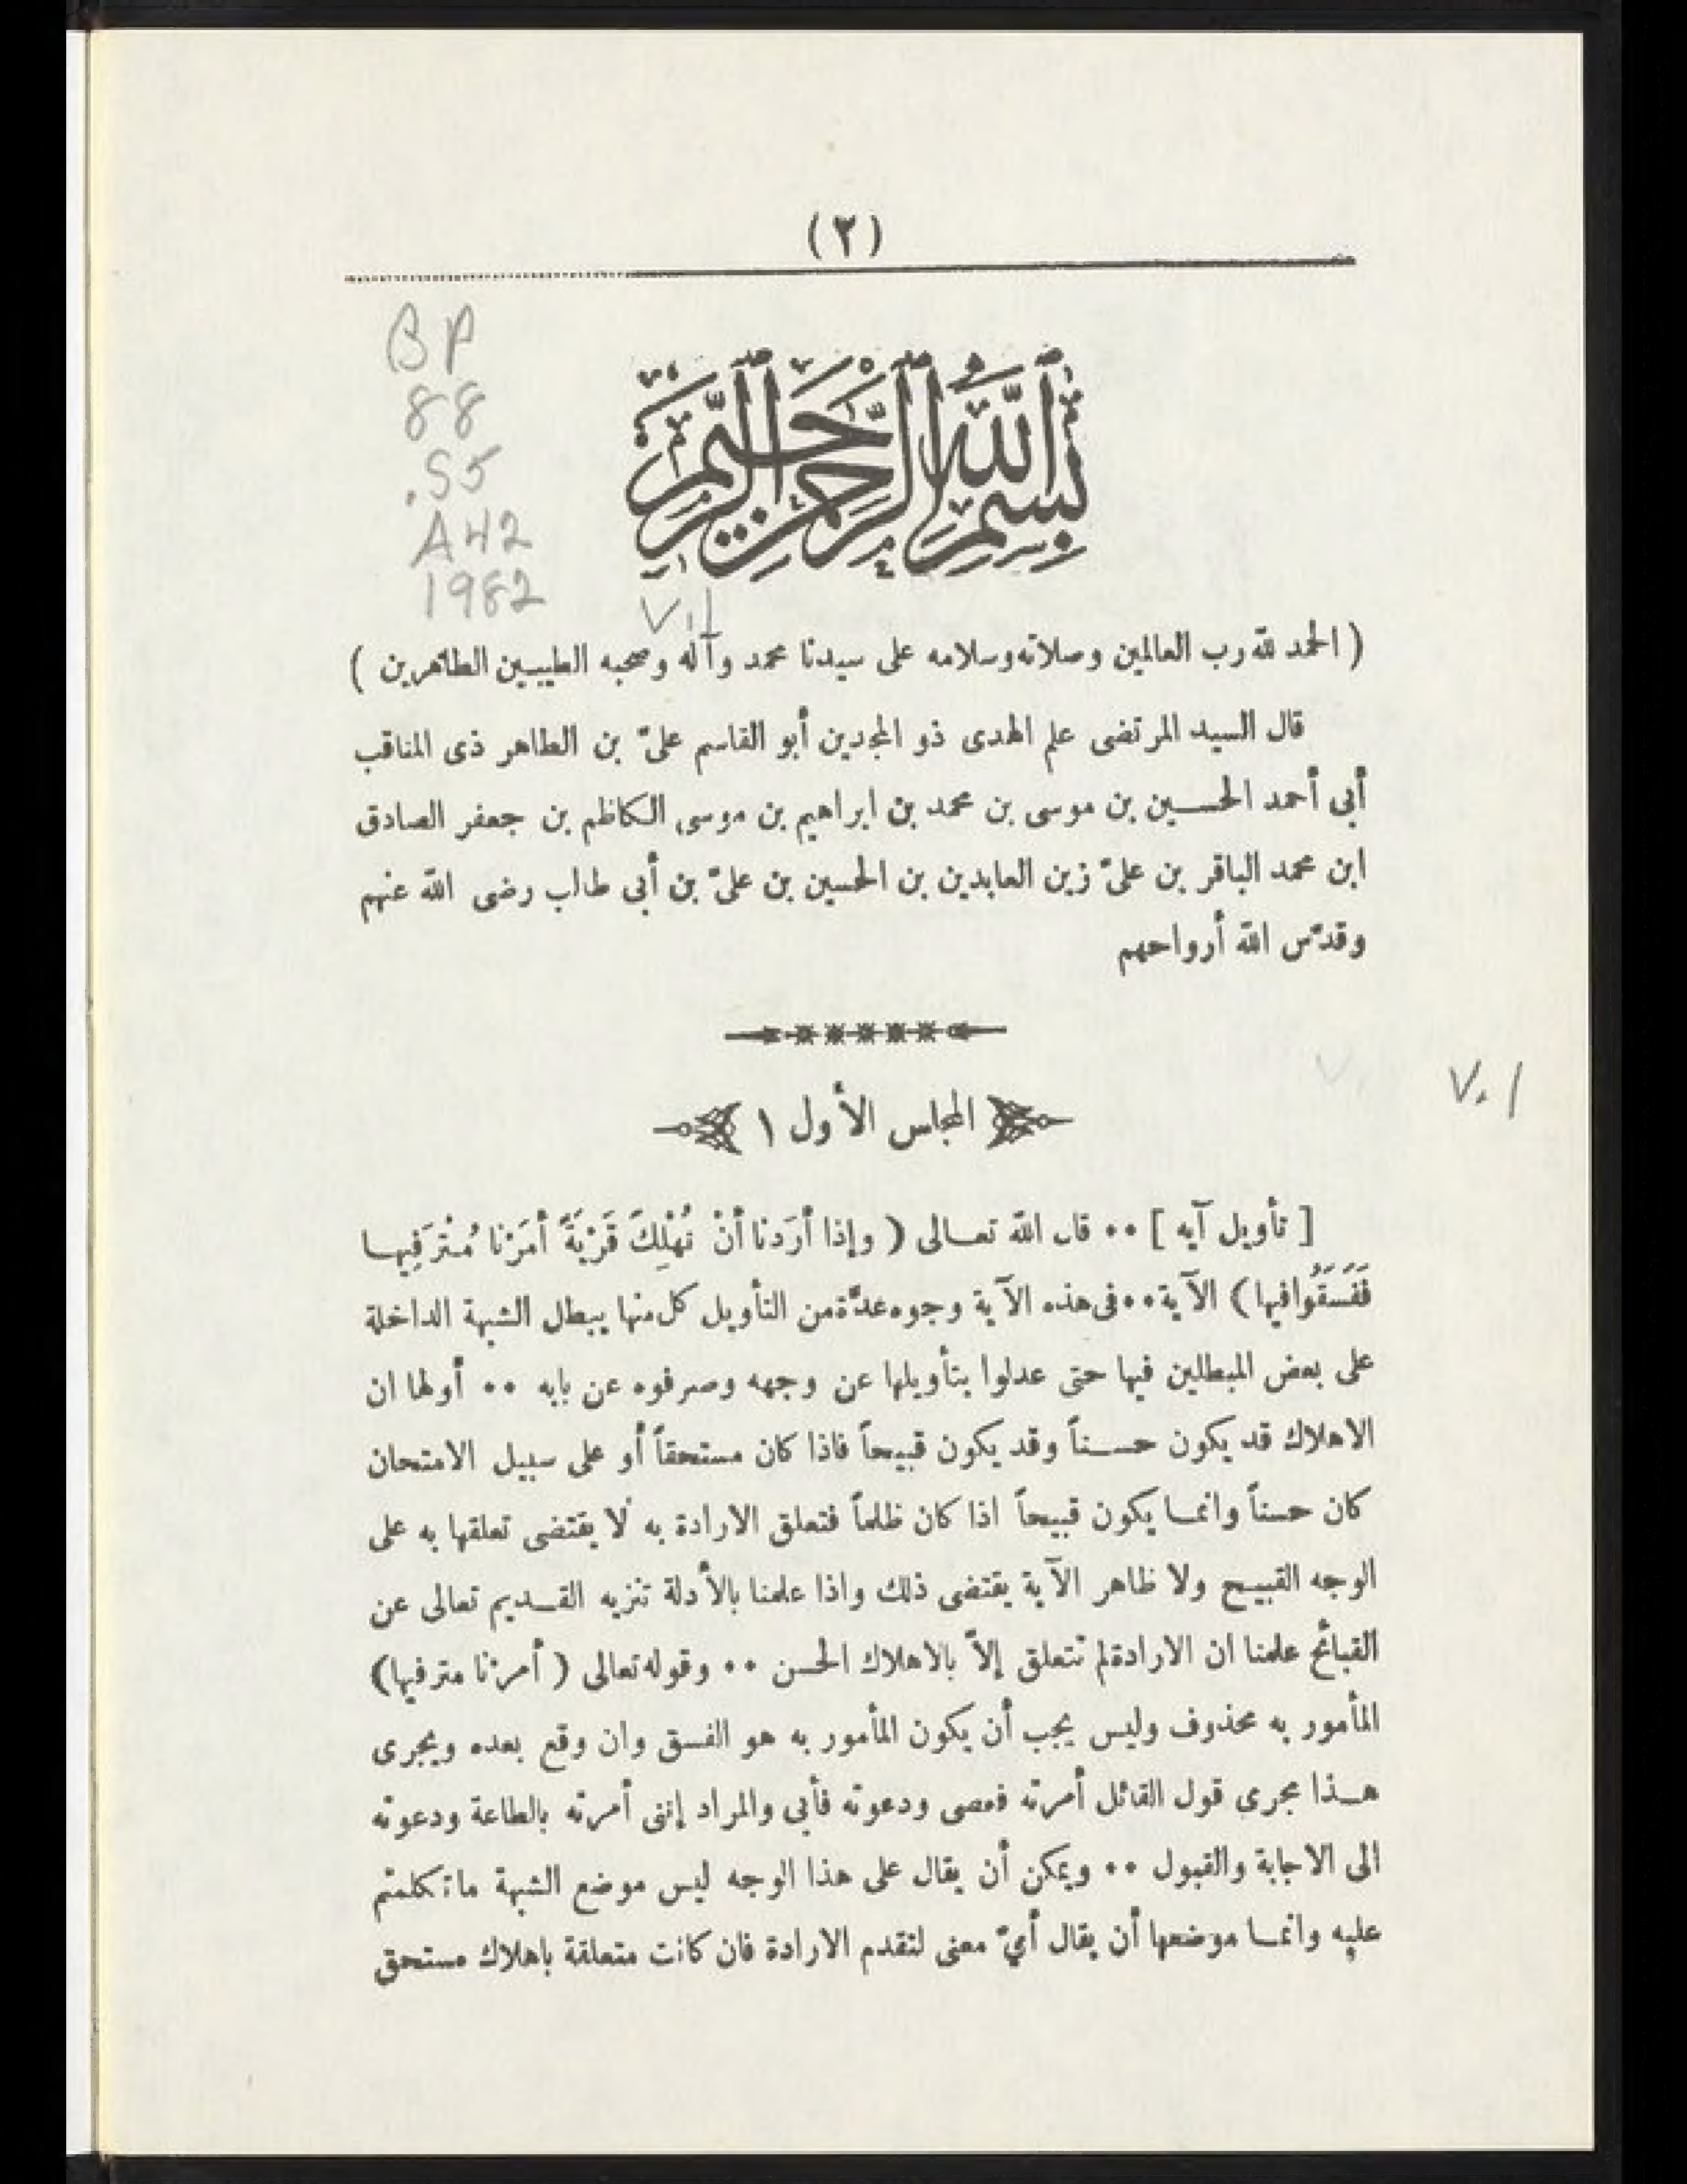 (٢)
BP
88
.S5
A42
1982
V.1
بسم الله الرحمن الرحيم
( الحمد لله رب العالمين وصلاته وسلامه على سيدنا محمد وآله وصحبه الطيبين الطاهرين )
قال السيد المرتضى علم الهدى ذو المجدين أبو القاسم علىّ بن الطاهر ذى المناقب
أبى أحمد الحسين بن موسى بن محمد بن ابراهيم بن موسى الكاظم بن جعفر الصادق
ابن محمد الباقر بن علىّ زين العابدين بن الحسين بن علىّ بن أبى طالب رضى الله عنهم
وقدّس الله أرواحهم
V.1
المجلس الأول ١
[ تأويل آيه ] ٠٠ قال الله تعالى ( وإذا أَرَدنا أنْ نُهْلِكَ قَرْيَةً أمَرْنا مُتْرَفِيها
فَفَسَقُوا فيها ) الآية ٠٠ فى هذه الآية وجوه عدَّة من التأويل كل منها يبطل الشبهة الداخلة
على بعض المبطلين فيها حتى عدلوا بتأويلها عن وجهه وصرفوه عن بابه ٠٠ أولها ان
الاهلاك قد يكون حسناً وقد يكون قبيحاً فاذا كان مستحقاً أو على سبيل الامتحان
كان حسناً وانما يكون قبيحاً اذا كان ظلماً فتعلق الارادة به لا يقتضى تعلقها به على
الوجه القبيح ولا ظاهر الآية يقتضى ذلك واذا علمنا بالأدلة تنزيه القديم تعالى عن
القبائح علمنا ان الارادة لم تتعلق إلاّ بالاهلاك الحسن ٠٠ وقوله تعالى ( أمرنا مترفيها )
المأمور به محذوف وليس يجب أن يكون المأمور به هو الفسق وان وقع بعده ويجرى
هذا مجرى قول القائل أمرته فعصى ودعوته فأبى والمراد إننى أمرته بالطاعة ودعوته
الى الاجابة والقبول ٠٠ ويمكن أن يقال على هذا الوجه ليس موضع الشبهة ما تكلمتم
عليه وانما موضعها أن يقال أيّ معنى لتقدم الارادة فان كانت متعلقة باهلاك مستحق